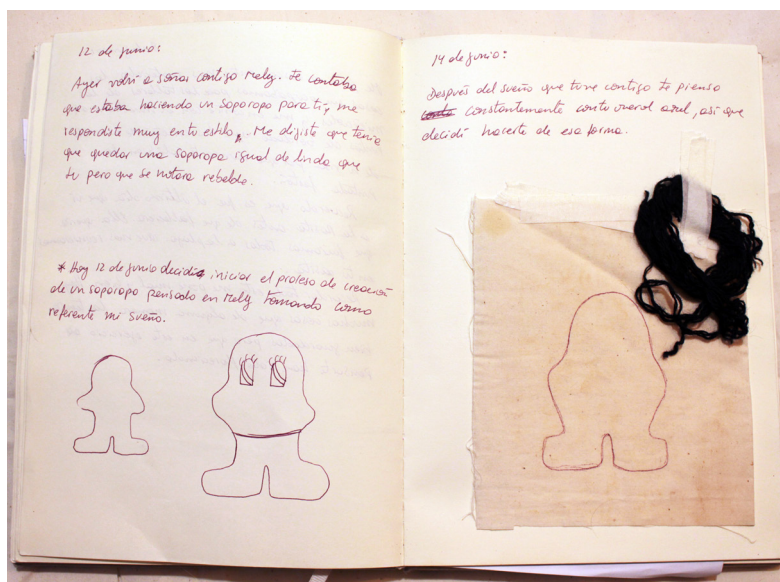 12 de junio:
Ayer volví a soñar contigo Mely. Te contaba
que estaba haciendo un soporopo para ti y me
respondiste muy en tu estilo. Me dijiste que tenía
que quedar una soporopa igual de linda que
tu pero que se notara rebelde.
* Hoy 12 de junio decidí iniciar el proceso de creación
de un soporopo pensado en Mely tomando como
referente mi sueño.
14 de junio:
Después del sueño que tuve contigo te pienso
constantemente con tu overol azul, así que
decidí hacerte de esa forma.